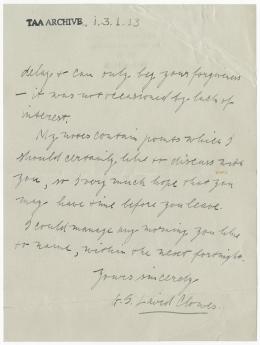 TAA ARCHIVE. i.3.1.13
delay & can only beg your forgiveness
– it was not occasioned by lack of
interest.
My notes contain points which I
should certainly like to discuss with
you, so I very much hope that you
may have time before you leave.
I could manage any morning you like
to name, within the next fortnight.
Yours sincerely
G. S. Laird Clowes.